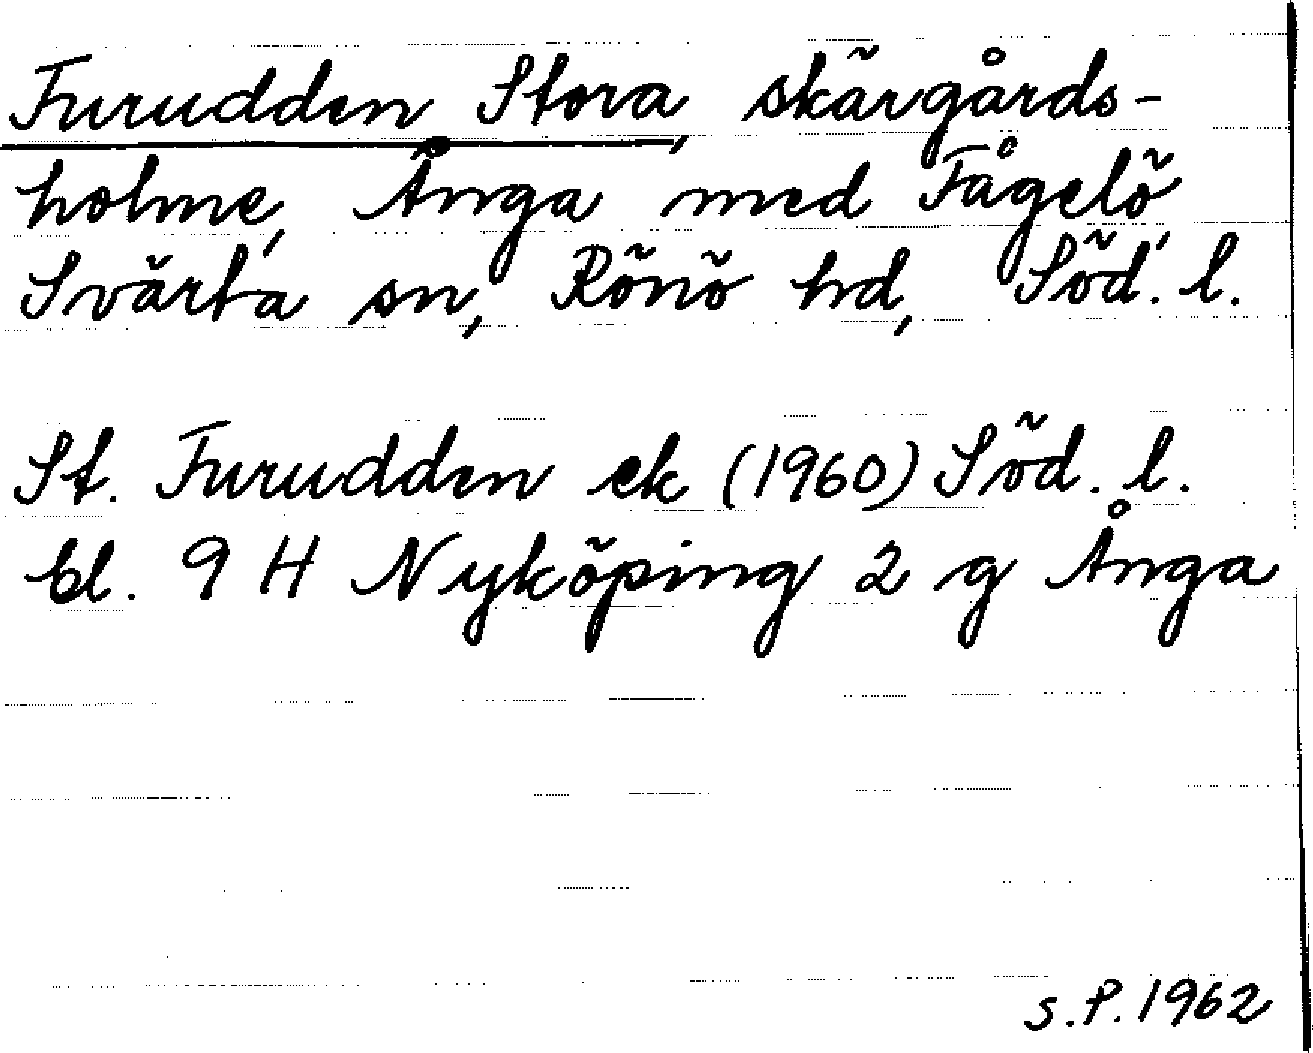 Furudden Stora, skärgårds-
holme, Ånga med Fågelö,
Svärta sn, Rönö hd, Söd. l.
St. Furudden ek (1960) Söd. l.
bl. 9 H Nyköping 2 g Ånga
S.P. 1962